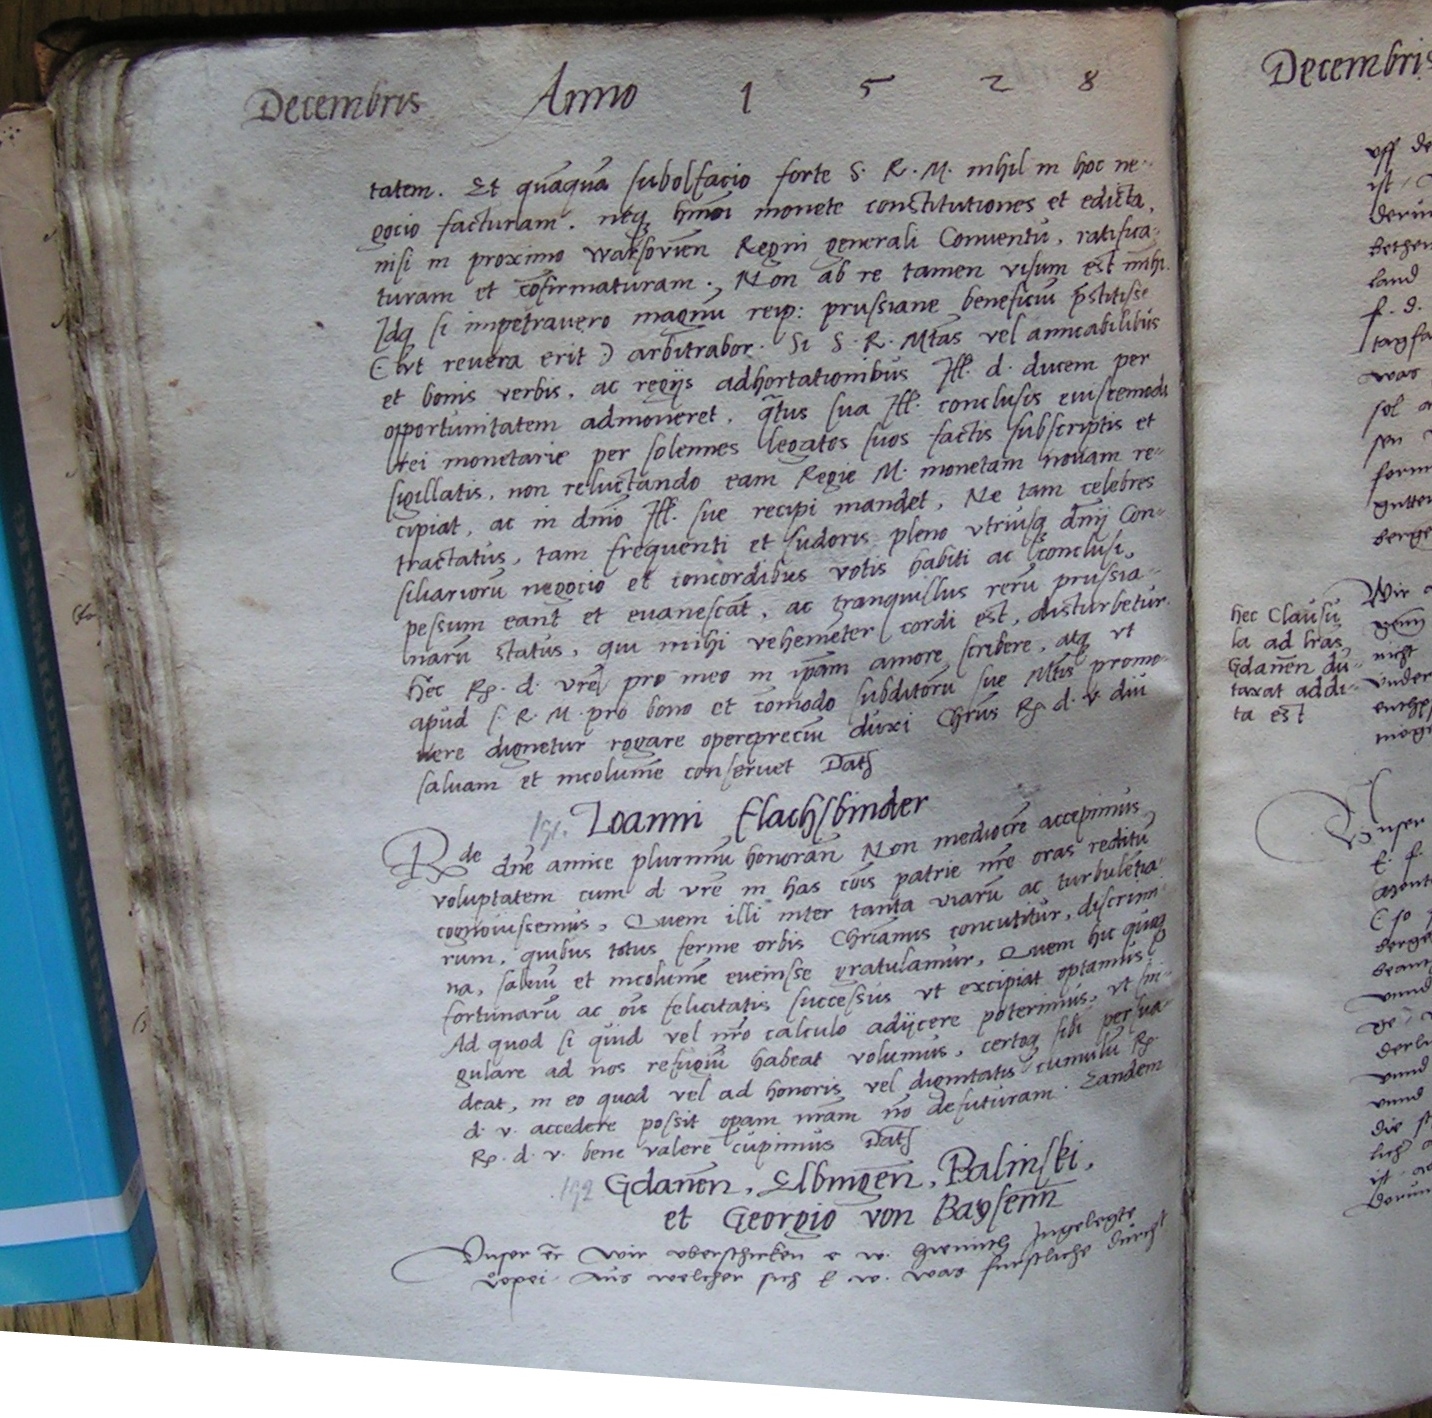 Decembris Anno 1 5 2 8
tatem. Et quāquā subolfacio forte S. R. M. nihil in hoc ne-
gocio facturam. neq hmōi monete constitutiones et edicta,
nisi in proximo warsovień Regni generali Conventu, ratifica-
turam et cōfirmaturam. Non ab re tamen visum est mihi.
Idq si impetravero magnū reip: prussiane beneficiū p̄stitisse
(ut revera erit) arbitrabor. Si S. R. Mtas vel amicabilibus
et bonis verbis, ac regijs adhortationibus Ill. d. ducem per
opportunitatem admoneret, q̄tus sua Ill. conclusis eiuscemodi
rei monetarie per solennes legatos suos factis subscriptis et
sigillatis, non reluctando eam Regie M. monetam novam re-
cipiat, ac in dnio Ill. sue recipi mandet, Ne tam celebres
tractatus, tam frequenti et sudoris pleno utriusq dnij Con-
siliariorū negocio et concordibus votis habiti ac conclusi,
pessum eant et evanescāt, ac tranquillus rerū prussia-
narū status, qui mihi vehemēter cordi est, disturbetur.
hec R. d. vre pro meo in ipam amore scribere, atq ut
apud S. R. M. pro bono et cōmodo subditorū sue Mtis promo-
vere dignetur rogare opereprecīu duxi Chrus R. d. v. diu
salvam et incolumē conservet Dat
191. Ioanni flachsbinder
Rde dne amice plurimū honorań Non mediocrē accepimus
voluptatem cum d vre in has cōis patrie nre oras reditū
cognovissemus, Quem illi inter tanta viarū ac turbulētia-
rum, quibus totus ferme orbis Chrianus concutitur, discrimi-
na, salvū et incolumē evenisse gratulamur, Quem hic quoq
fortunarū ac ois felicitatis successus ut excipiat optamus,
Ad quod si quid vel nro calculo adijcere poterimus, ut sin-
gulare ad nos refugiū habeat volumus, certoq sibi persua-
deat, in eo quod vel ad honoris vel dignitatis cumulū R.
d. v. accedere possit opam nram nō defuturam. Eandem
R. d. v. bene valere cupimus Dat
192 Gdaneń, Elbingeń, Balinski,
et Georgio von Baysenn
Unser Wir uberschicken e w. hiemith Ingelegte
Copei. Aus welcher sich E. w. was furstliche durch
Decembris
uff de
ist,
land
f. d.
tagfa
was
berge
Wir
hec Clausu
la ad lras
Gdaneń dū-
taxat addi-
ta est
nicht
under
Unser
E. f.
unnd
unnd
unnd
die
ist